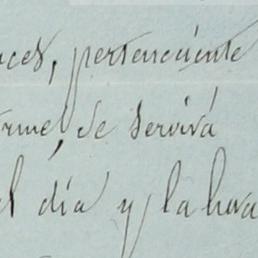 nces, perteneciente
orme, se servirá
el día y la hora